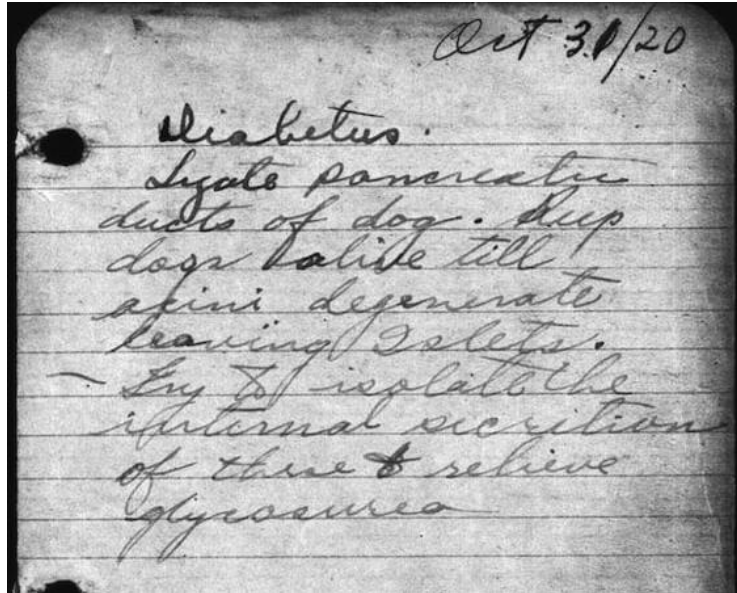 Oct 31/20
Diabetus.
Ligate pancreatic
ducts of dog. Keep
dogs alive till
acini degenerate
leaving Islets.
– Try to isolate the
internal secretion
of these to relieve
glycosurea